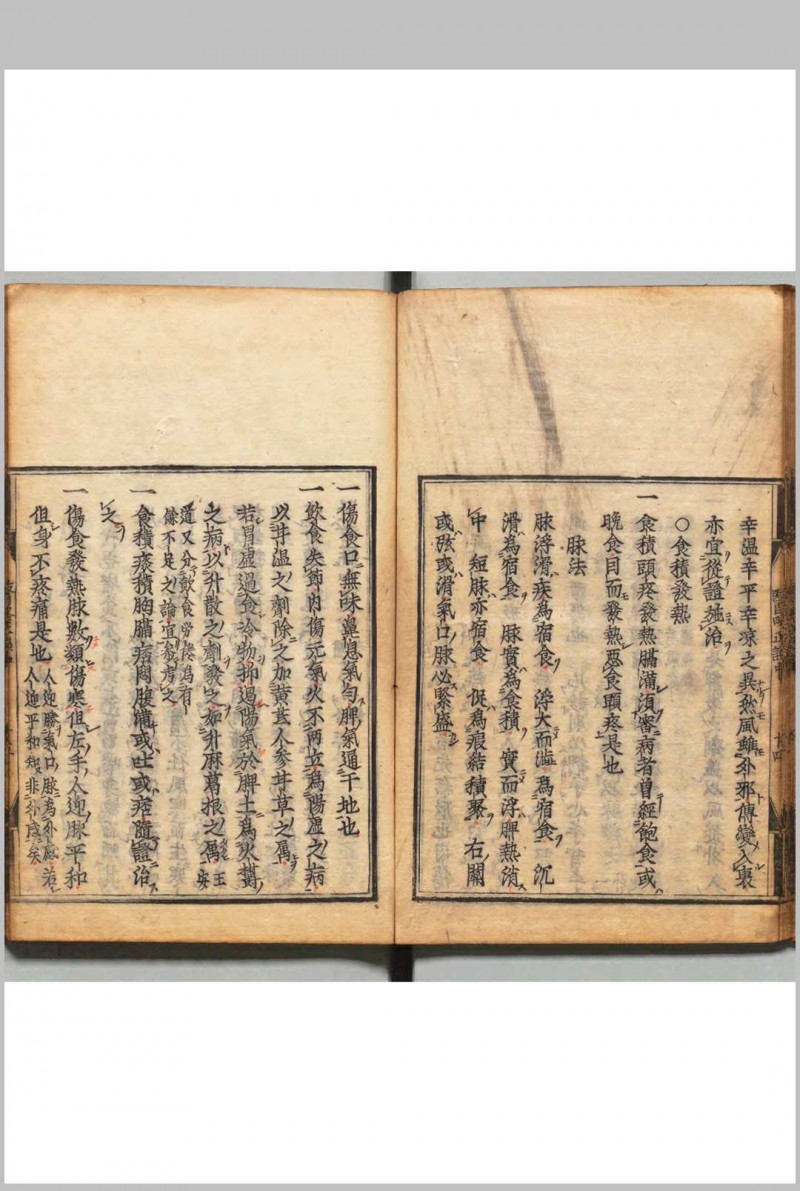 辛温辛平辛凉之異然風雖外邪傳變入裏
亦宜從證施治
〇食積發熱
一食積頭疼發熱膈滿須審病者曾經飽食或
晚食目而發熱惡食頭疼是也
脉法
脉浮滑疾為宿食 浮大而澁為宿食 沉
滑為宿食 脉實為食積 實而浮脾熱消
中 短脉亦宿食 促為痕結積聚 右關
或弦或滑氣口脉必緊盛
一傷食口無味鼻息氣勻脾氣通于地也
一飲食失節內傷元氣火不两立為陽虚之病
以甘温之劑除之加黄芪人參甘草之属
若胃虚過食冷物抑遏陽氣於脾土為火鬱
之病以升散之劑發之如升麻葛根之属 王安
道又分飲食勞倦為有
餘不足之論宜叅考之
一食積痰積胸膈痞悶腹
或吐或瘧隨證治
之
一傷食發熱脉數類傷寒但左手人迎脉平和
但身不疼痛是也 人迎
氣口脉為外感若
人迎平和知非外感矣